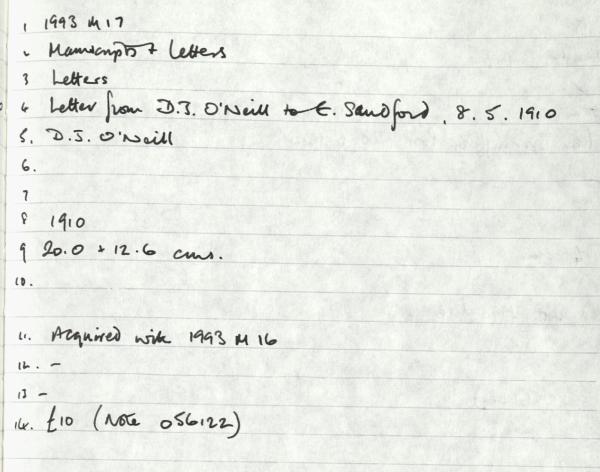 1 1993 M 17
2 Manuscripts + Letters
3 Letters
4 Letter from D.J. O'Neill to E. Sandford, 8. 5. 1910
5. D.J. O'Neill
6.
7
8 1910
9 20.0 x 12.6 cms.
10.
11. Acquired with 1993 M 16
12. -
13 -
14. £10 (Note 056122)